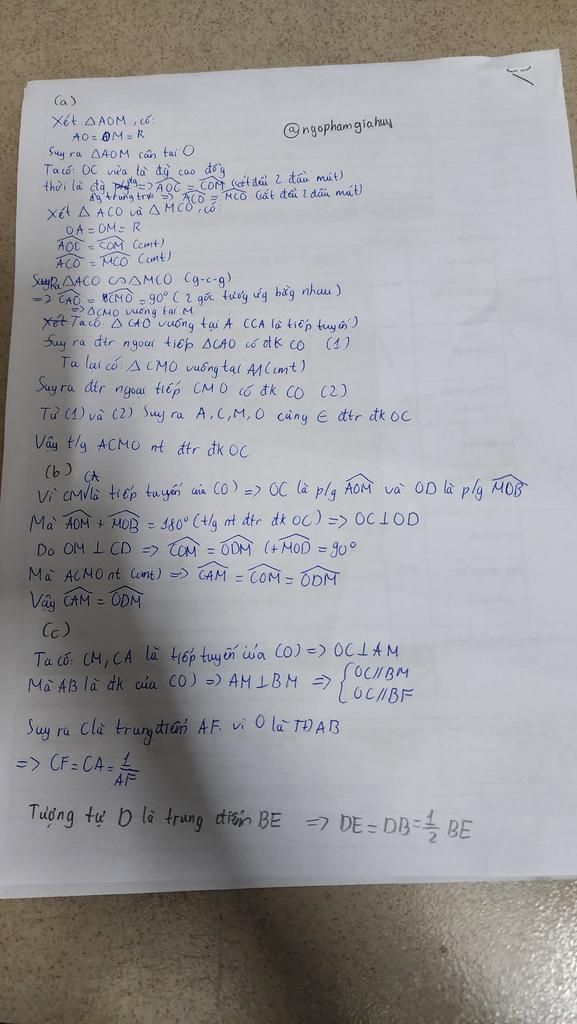 (a)
Xét △AOM, có:
@ngophamgiahuy
AO = OM = R
Suy ra △AOM cân tại O
Ta có: OC vừa là đg cao đồng
thời là đg => AOC = COM (cắt đều 2 đầu mút)
đg trung trực => ACO = MCO (cắt đều 2 đầu mút)
Xét △ACO và △MCO, có:
OA = OM = R
AOC = COM (cmt)
ACO = MCO (cmt)
Suy Ra △ACO ∽ △MCO (g-c-g)
=> CAO = CMO = 90° (2 góc tương ứg bằg nhau)
=> △CMO vuông tại M
Xét Ta có: △CAO vuông tại A (CA là tiếp tuyến)
Suy ra đtr ngoại tiếp △CAO có đk CO (1)
Ta lại có: △CMO vuông tại M (cmt)
Suy ra đtr ngoại tiếp CMO có đk CO (2)
Từ (1) và (2) Suy ra A, C, M, O cùng ∈ đtr đk OC
Vậy t/g ACMO nt đtr đk OC
(b)
Vì CM, CA là tiếp tuyến của (O) => OC là p/g AOM và OD là p/g MOB
Mà AOM + MOB = 180° (t/g nt đtr đk OC) => OC⊥OD
Do OM ⊥ CD => COM = ODM (+MOD = 90°
Mà ACMO nt (cmt) => CAM = COM = ODM
Vậy CAM = ODM
(c)
Ta có: CM, CA là tiếp tuyến của (O) => OC⊥AM
Mà AB là đk của (O) => AM⊥BM => { OC//BM
OC//BF
Suy ra C là trung điểm AF. vì O là TĐ AB
=> CF = CA = 1/AF
Tượng tự D là trung điểm BE => DE = DB = 1/2 BE